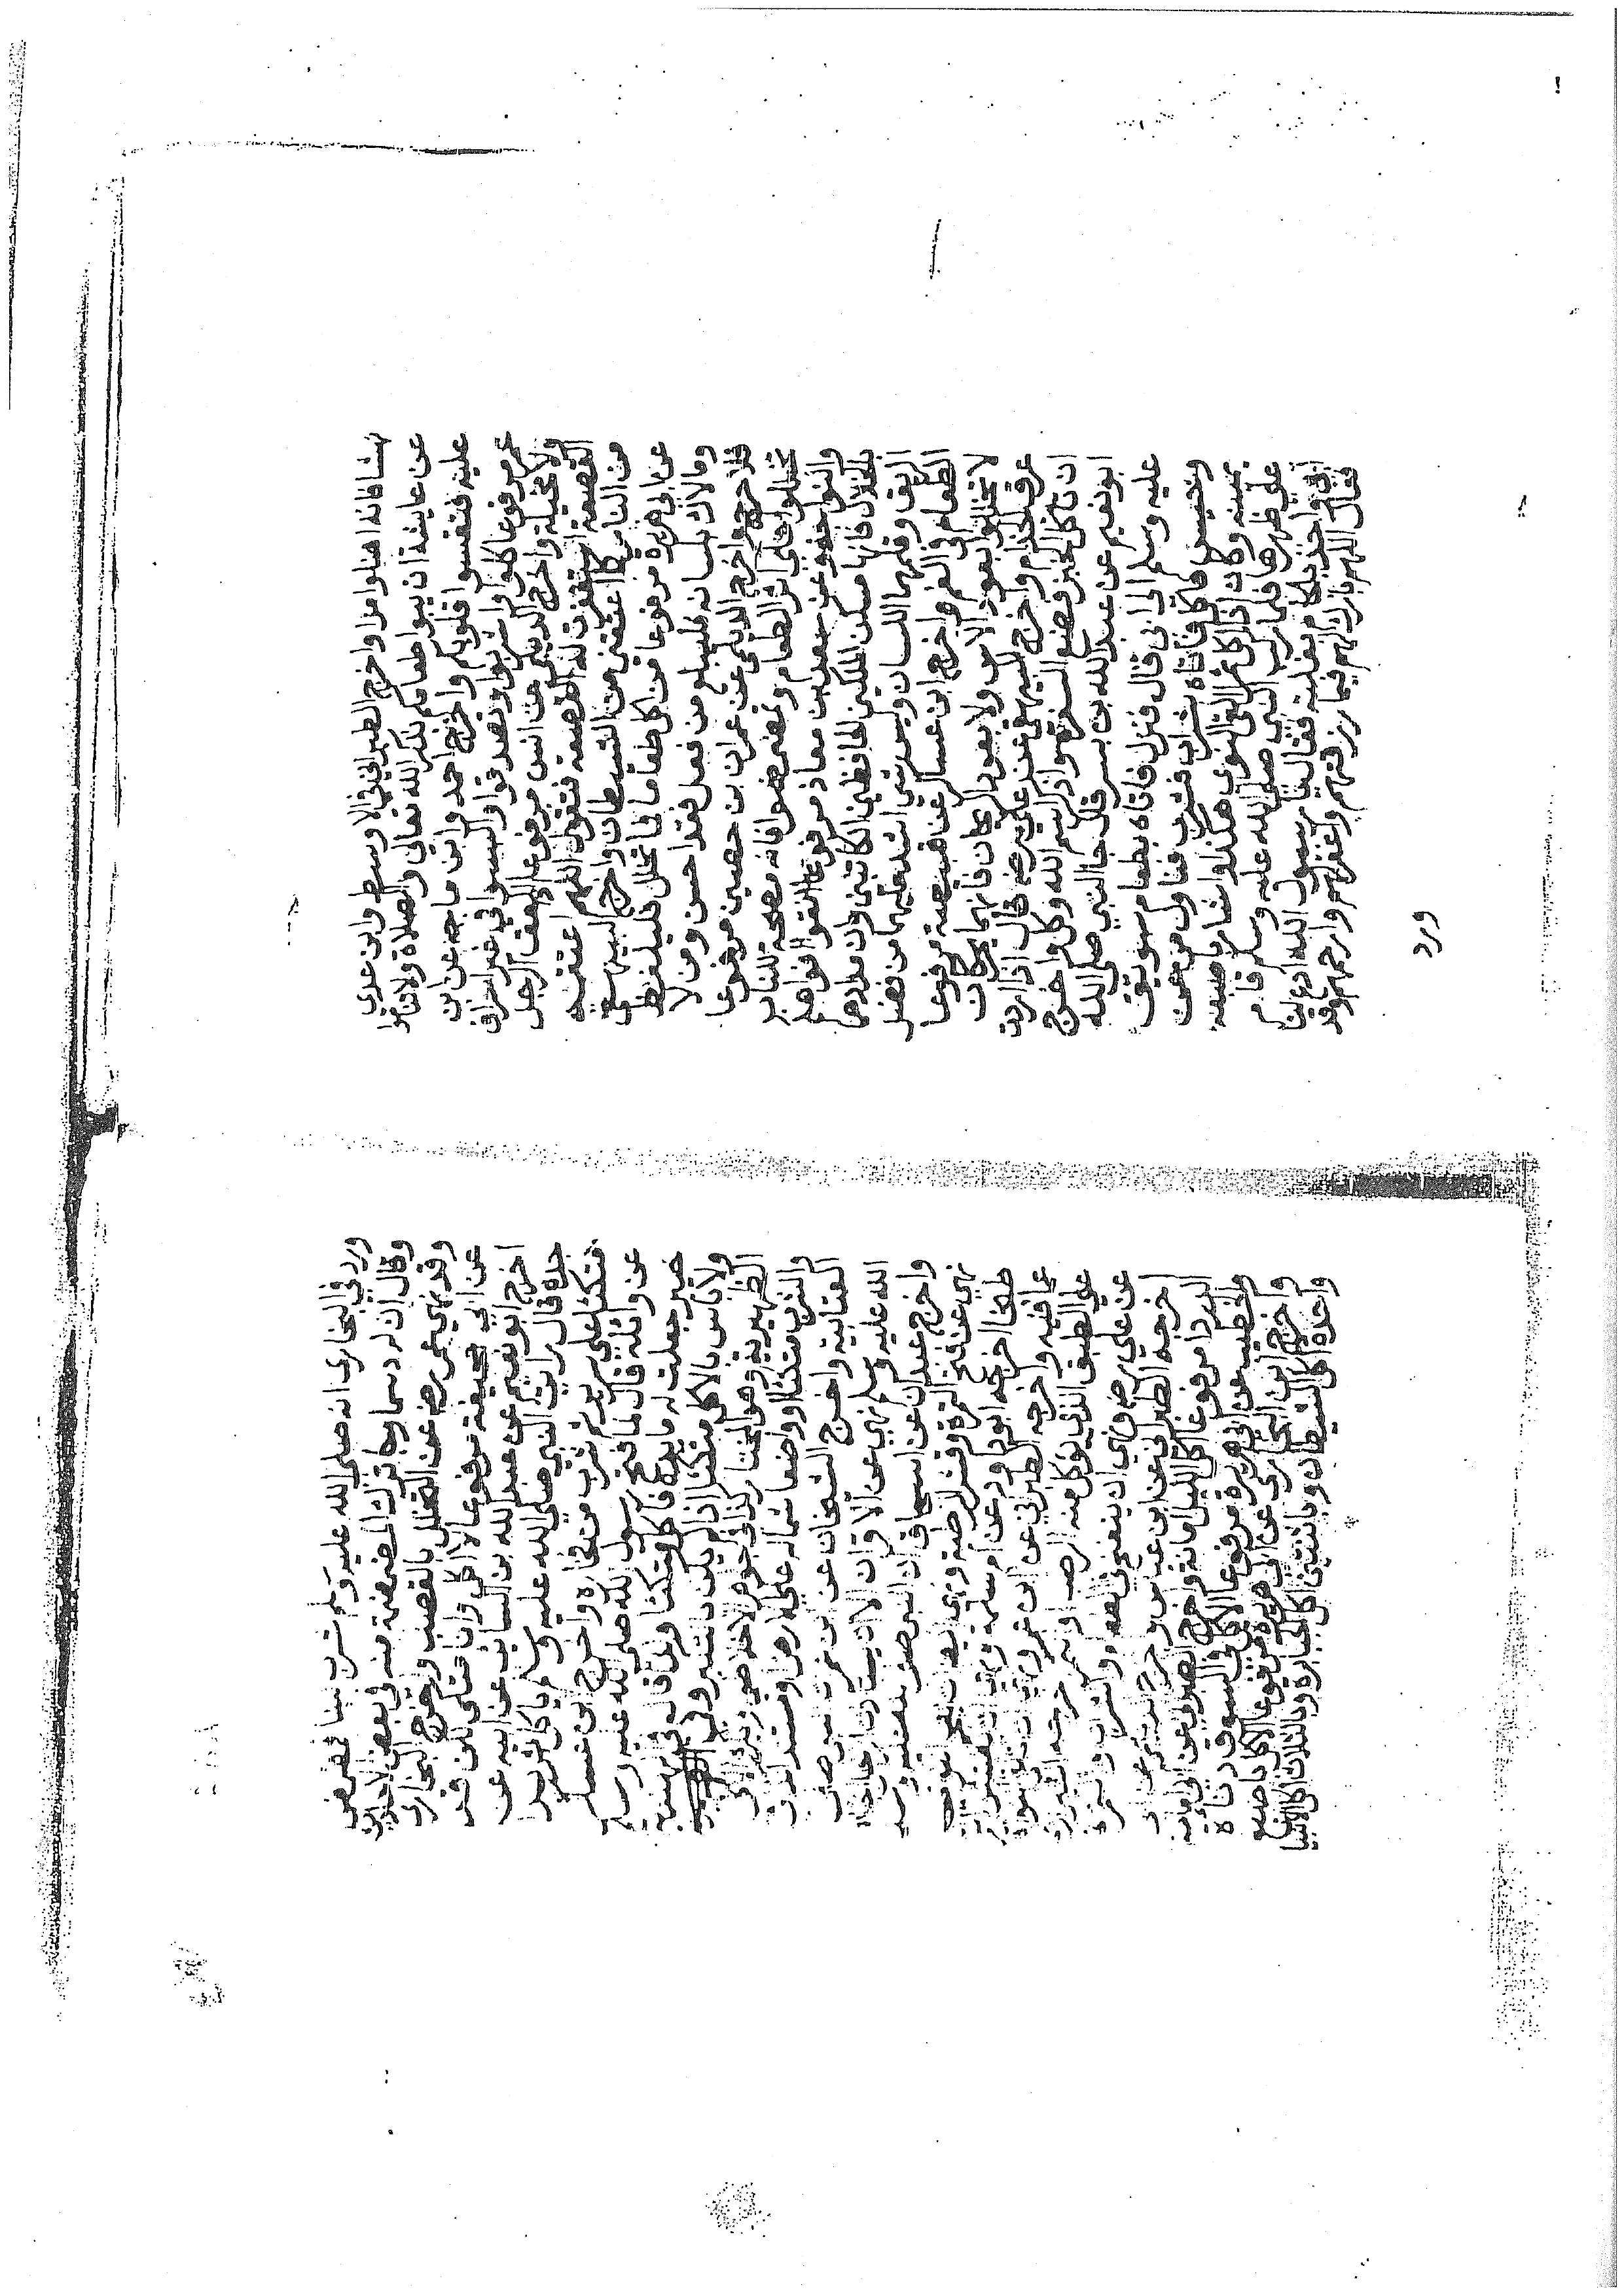 نهشا فانه اهنا وامرا واخرج الطبراني في الاوسط وابن عدي
عن عايشة اذيبوا طعامكم بذكر الله تعالى والصلاة ولا تناموا
عليه فتقسوا قلوبكم واخرج احمد وابن ماجه عن ابن
عمر مرفوعا كلوا واشربوا وتصدقوا والبسوا في غير اسراف
ولا مخيلة واخرج الديلمي عن انس مرفوعا اذا لعق الرجل
القصعة استغفرت له القصعة فتقول اللهم اعتقه
من النار كما اعتقني من الشيطان واخرج البيهقي
عن ابي هريرة مرفوعا من اكل طعاما فما تخلل فليلفظ
وما لاك بلسانه فليبلع من فعل فقد احسن ومن لا
فلا حرج واخرج الديلمي عن عمران بن حصين مرفوعا
تخللوا على اثر الطعام وتمضمضوا فانه مصحة للناب
والنواجذ وعن سعد بن معاذ مرفوعا انقوا افواهكم
بالخلال فانها مسكن الملكين الحافظين الكاتبين وان مدادهما
الريق وقلمهما اللسان وليس شي اشد عليهما من فضل
الطعام في الفم واخرج ابن عساكر عن قبيصة مرفوعا
لا تخللوا بعود الاس ولا بعود الريحان فانهما يحركان
عرق الجذام واخرج البيهقي عن علي رضه قال اذا اردت
ان تاكل الخبز وضع السفرة واذكر اسم الله وكل واخرج
ابو نعيم عن عبد الله بن بسر قال جا النبي صلى الله
عليه وسلم الى ابي قال فنزل فاتاه بطعام سويق
وحيس فاكل فاتاه بشراب فشرب فناول من عن
يمينه وكان اذا اكل تمر القى النوى هكذا واشار باصبعه
على ظهرها فلما ركب النبي صلى الله عليه وسلم قام
ابي واخذ بلجام بغلته فقال يا رسول الله ادع لنا
فقال اللهم بارك لهم فيما رزقتهم واغفر لهم وارحمهم وقد
ورد
ورد في البخاري انه صلى الله عليه وسلم شرب لبنا فمضمض
وقال ان له دسما وجا ترك المضمضة منه في بعض الاحيان
وقد نهى عمر رضه عن التخلل بالقصب واخرج البخاري
عن ابي جحيفة مرفوعا لا اكل وانا متكي لكن قد
اخرج ابو نعيم عن عبد الله بن السايب عن ابيه عن
جده قال رايت النبي صلى الله عليه وسلم ياكل ثريدا
متكئا على سرير ثم شرب من فخاره واخرج ابن عساكر
عن واثلة قال لما فتح رسول الله صلى الله عليه وسلم
خيبر جعلت له مايدة فاكل متكئا ولذا قال في
ولا باس بالاكل متكئا اذا لم يكن بالتكبر وفي
الظهيرية وهو المختار كذا في جواهر الاخلاطي
والشرب متكئا او واضعا شماله على الارض او مستندا
العتابية واخرج الشيخان عن ابن عمر
الله عليه وسلم نهى عن الاقران الا ان يستاذن الرجل اخاه
واخرج عبدان عن اسحاق ان النبي صلى الله عليه وسلم
نهى عن فتح التمرة وقشر الرطبة
طبخا اخرجه ابو داود عن ام سلمة
عما فيه واخرجه الطبراني عن ابن عمر
على الطبق الذي يوكل منه الرطب او التمر اخرجه
عن علي رضه
اخرجه الطبراني عن ابن عباس
الدردا مرفوعا اكل الليل امانة واخرج الطبراني عن ابي امامة
والخطيب عن ابي هريرة مرفوعا الاكل في السوق دناة
واخرج ابن النجار عن ابي هريرة مرفوعا الاكل باصبع
واحدة اكل الشيطان وباثنتين اكل الجبابرة وبالثلاث اكل الانبيا